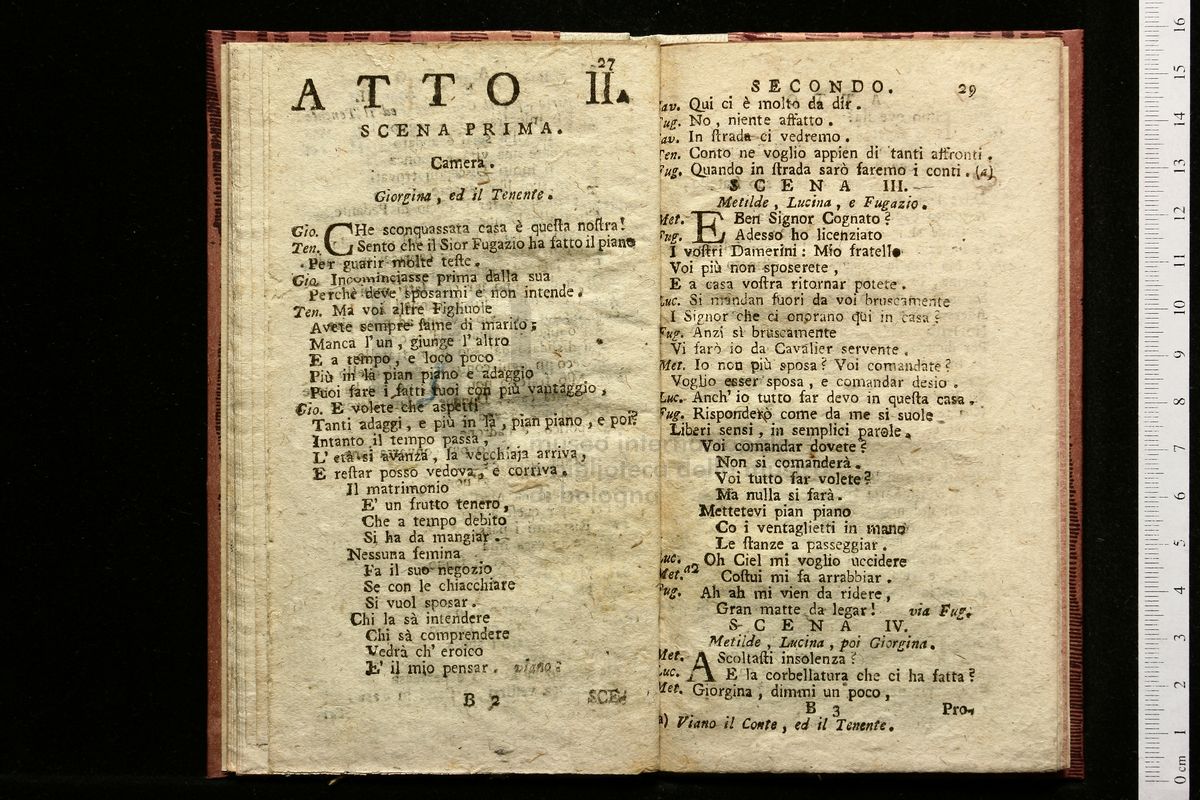 27
ATTO II.
SCENA PRIMA.
Camera.
Giorgina, ed il Tenente.
Gio. CHe sconquassata casa è questa nostra!
Ten. Sento che il Sior Fugazio ha fatto il piano
Per guarir molte teste.
Gio. Incominciasse prima dalla sua
Perchè deve sposarmi e non intende.
Ten. Ma voi altre Fighuole
Avete sempre fame di marito;
Manca l'un, giunge l'altro
E a tempo, e loco poco
Più in là pian piano e adaggio
Puoi fare i fatti tuoi con più vantaggio,
Gio. E volete che aspetti
Tanti adaggi, e più in là, pian piano, e poi?
Intanto il tempo passa,
L'età si avanza, la vecchiaja arriva,
E restar posso vedova, e corriva.
Il matrimonio
E' un frutto tenero,
Che a tempo debito
Si ha da mangiar.
Nessuna femina
Fa il suo negozio
Se con le chiacchiare
Si vuol sposar.
Chi la sà intendere
Chi sà comprendere
Vedrà ch' eroico
E' il mio pensar. viano
B 2 SCE-
SECONDO. 29
av. Qui ci è molto da dir.
ug. No, niente affatto.
av. In strada ci vedremo.
Ten. Conto ne voglio appien di tanti affronti.
Fug. Quando in strada sarò faremo i conti. (a)
SCENA III.
Metilde, Lucina, e Fugazio.
Met. E Ben Signor Cognato?
Fug. Adesso ho licenziato
I vostri Damerini: Mio fratello
Voi più non sposerete,
E a casa vostra ritornar potete.
Luc. Si mandan fuori da voi bruscamente
I Signor che ci onorano quì in casa?
Fug. Anzi sì bruscamente
Vi farò io da Cavalier servente.
Met. Io non più sposa? Voi comandate?
Voglio esser sposa, e comandar desio.
Luc. Anch' io tutto far devo in questa casa.
Fug. Risponderò come da me si suole
Liberi sensi, in semplici parole.
Voi comandar dovete?
Non si comanderà.
Voi tutto far volete?
Ma nulla si farà.
Mettetevi pian piano
Co i ventaglietti in mano
Le stanze a passeggiar.
Luc. Oh Ciel mi voglio uccidere
Met. a2 Costui mi fa arrabbiar.
Fug. Ah ah mi vien da ridere,
Gran matte da legar! via Fug.
SCENA IV.
Metilde, Lucina, poi Giorgina.
Met. AScoltasti insolenza?
Luc. E la corbellatura che ci ha fatta?
Met. Giorgina, dimmi un poco,
B 3 Pro-
a) Viano il Conte, ed il Tenente.